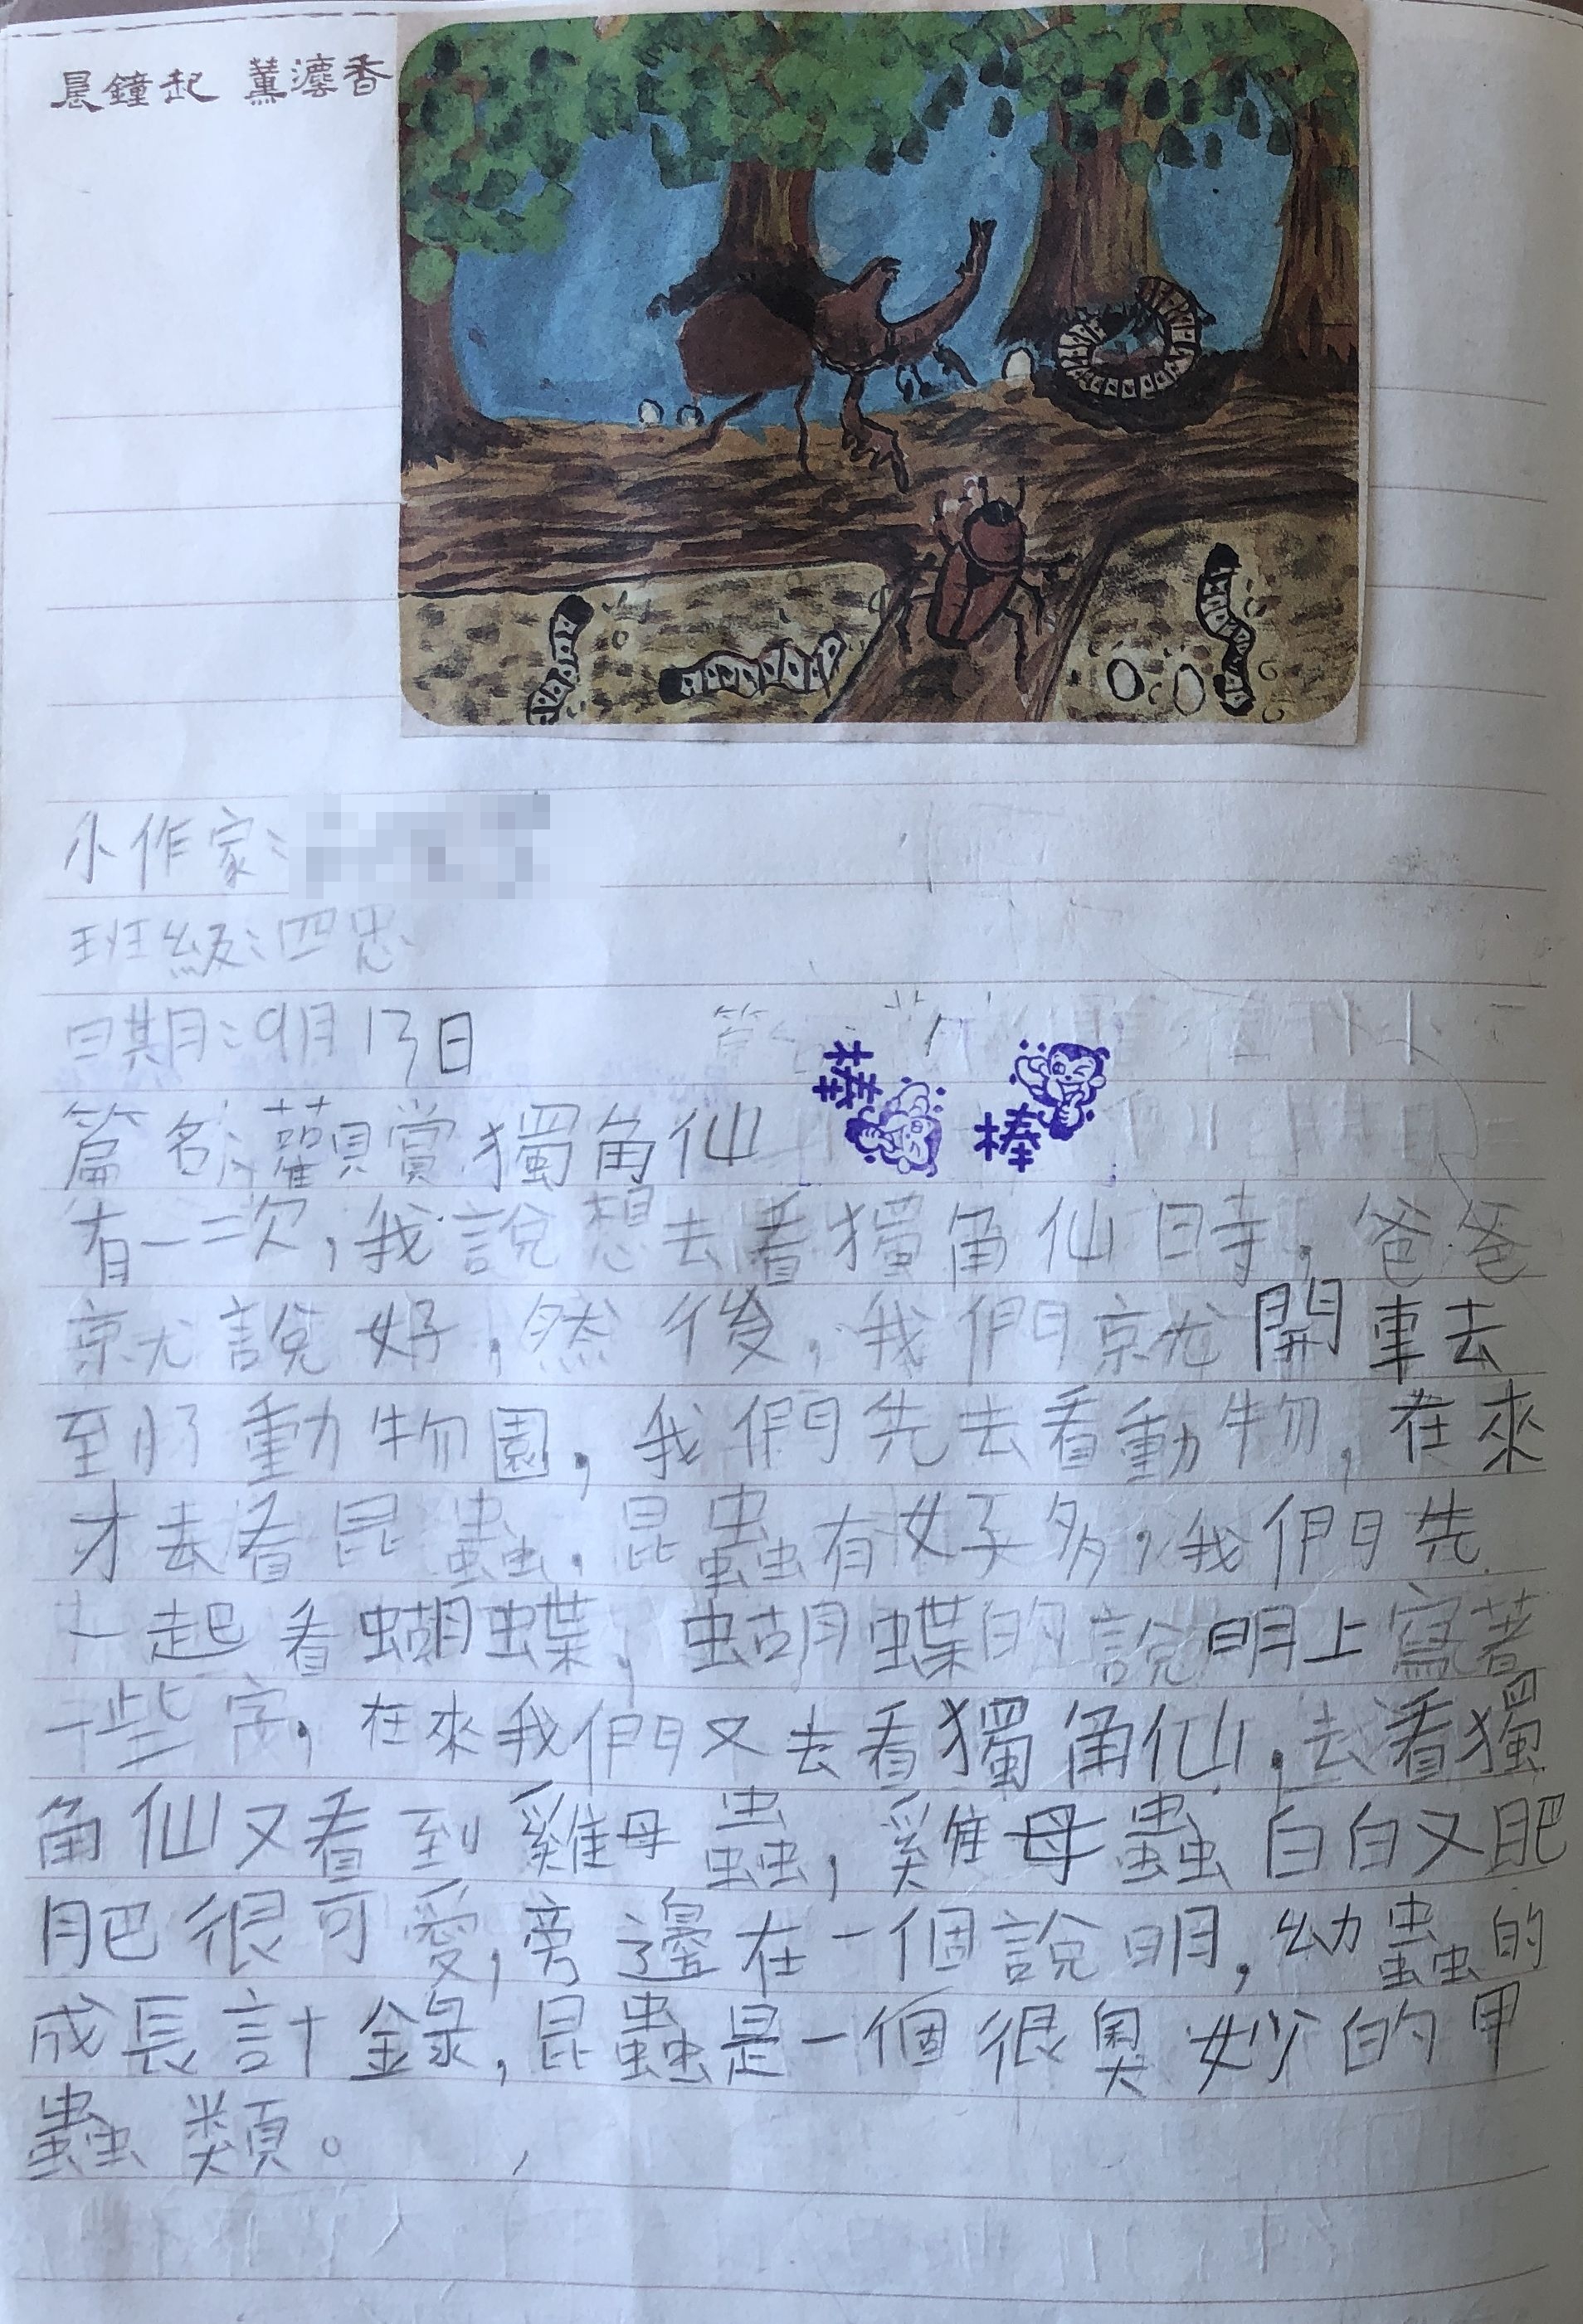 晨鐘起 薰瀌香
小作家:
班級:四忠
日期:9月13日
篇名:觀賞獨角仙
棒
棒
有一次,我說想去看獨角仙時,爸爸
就說好,然後,我們就開車去
到動物園,我們先去看動物,在來
才去看昆蟲,昆蟲有好多,我們先
一起看蝴蝶,蝴蝶的說明上寫著
一些字,在來我們又去看獨角仙,去看獨
角仙又看到雞母蟲,雞母蟲白白又肥
肥很可愛,旁邊在一個說明,幼蟲的
成長計錄,昆蟲是一個很奧妙的甲
蟲類。